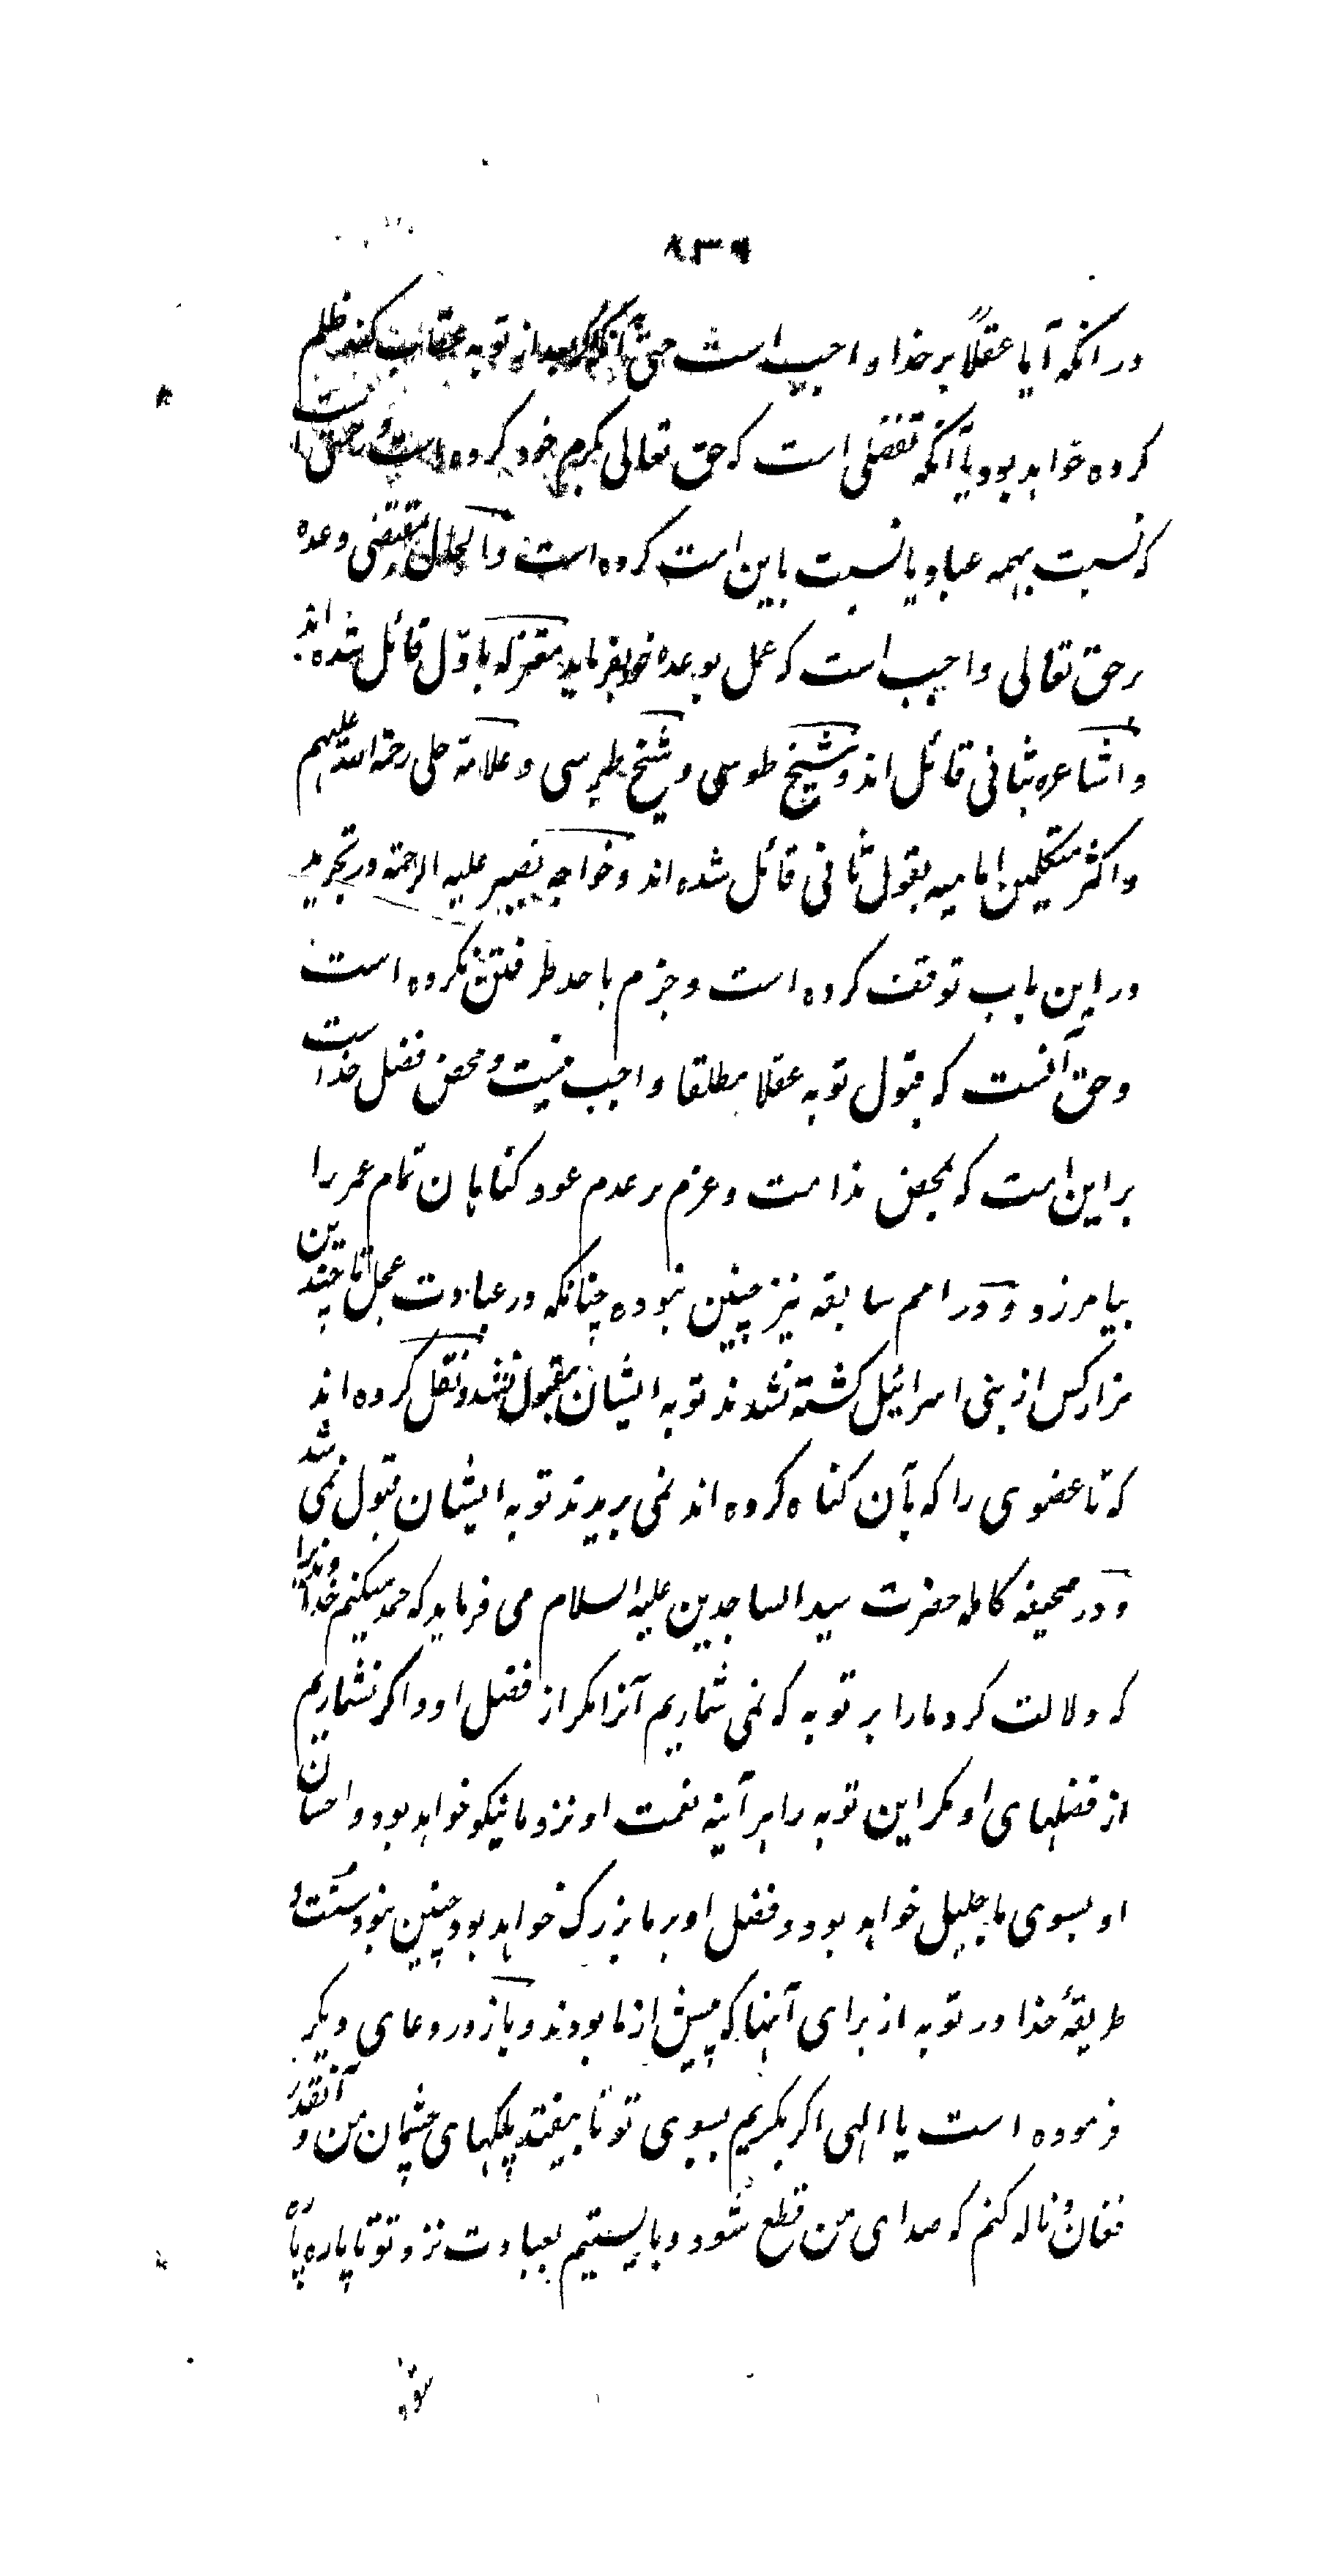 ۸۳۹
در آنکه آیا عقلاً بر خدا واجب است حتی آنکه اگر بعد از توبه عقاب کند ظلم
کرده خواهد بود یا آنکه تفضلی است که حق تعالی بکرم خود کرده است
که نسبت بهمه عباد یا نسبت باین امت کرده است و الحال بمقتضی وعده
بر حق تعالی واجب است که عمل بوعده خود بفرماید معتزله باول قائل شده اند
و اشاعره بثانی قائل اند و شیخ طوسی و شیخ طبرسی و علامه حلی رحمة الله علیهم
و اکثر متکلمین امامیه بقول ثانی قائل شده اند و خواجه نصیر علیه الرحمة در تجرید
در این باب توقف کرده است و جزم باحد طرفین نکرده است
و حق آنست که قبول توبه عقلا مطلقا واجب نیست و محض فضل خداست
بر این امت که بمحض ندامت و عزم بر عدم عود کناهان تمام عمر را
بیامرزد و در امم سابقه نیز چنین نبوده چنانکه در عبادت عجل تا چندین
هزار کس از بنی اسرائیل کشته نشدند توبه ایشان مقبول نشد و نقل کرده اند
که تا عضوی را که بآن کناه کرده اند نمی بریدند توبه ایشان قبول نمی شد
و در صحیفه کامله حضرت سید الساجدین علیه السلام می فرماید که حمد میکنم خداوندیرا
که دلالت کرد ما را بر توبه که نمی شماریم آنرا مکر از فضل او و اکر نشماریم
از فضلهای او مکر این توبه را هر آینه نعمت او نزد ما نیکو خواهد بود و احسان
او بسوی ما جلیل خواهد بود و فضل او بر ما بزرک خواهد بود چنین نبود سنت و
طریقهٔ خدا در توبه از برای آنها که پیش از ما بودند و باز در دعای دیکر
فرموده است یا الهی اکر بکریم بسوی تو تا بیفتد پلکهای چشمان من و آنقدر
فغان و ناله کنم که صدای من قطع شود و بایستم بعبادت نزد تو تا پاره پاره